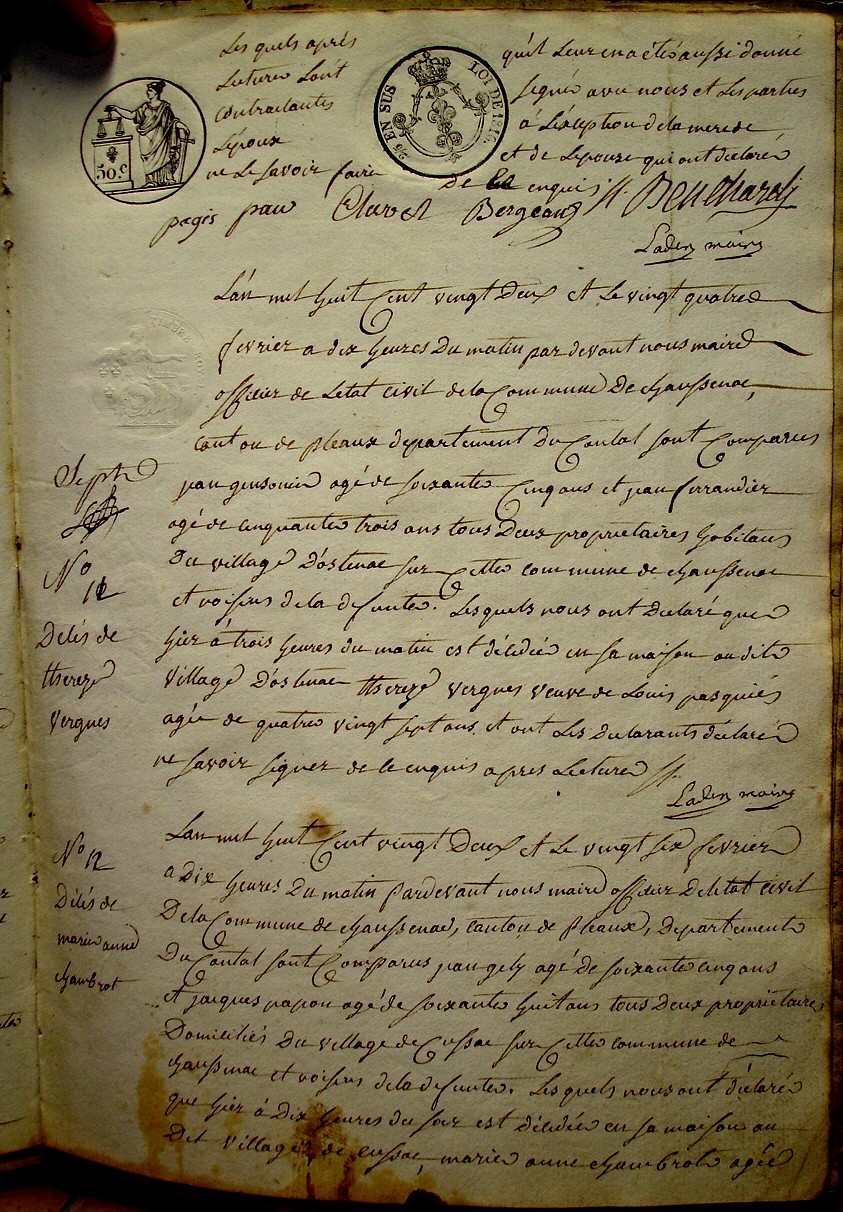 Les quels après qu'il Leur en a été aussi donné
Lecture Lont signé avec nous et Les parties
contractantes à L'exception de la mere de
L'époux et de Lepouse qui ont déclaré
ne Le savoir faire De ce enquis //.
pagis pau Clavet Bergeaud
Laden maire
50.c
25 EN SUS LOI DE 1816.
L'an mil huit Cent vingt Deux et Le vingt quatre
fevrier a dix heures Du matin par devant nous maire
officier de Letat civil de la Commune De chaussenac,
Canton de pleaux departement Du Cantal sont Comparus
jean gensonie agé de soixante Cinq ans et jean ferrandier
agé de cinquante trois ans tous Deux proprietaires habitans
Du village D'ostenac sur Cette commune de chaussenac
et voisins de la defunte. Lesquels nous ont Declaré que
hier à trois heures du matin est décédée en sa maison au dit
village D'ostenac thereze vergnes veuve de Louis pasquiés
agée de quatre vingt sept ans et ont Les declarants déclaré
ne savoir signer de ce enquis apres Lecture //.
Laden maire
Septe
No
11
Décés de
therezе
vergnes
No 12
Décés de
marie anne
chambrot
L'an mil huit Cent vingt Deux et Le vingt six fevrier
a Dix heures Du matin Pardevant nous maire officier De létat civil
De la Commune de chaussenac, canton de pleaux, departement
Du Cantal sont Comparus jean gely agé de soixante cinq ans
et jacques papon agé de soixante huit ans tous Deux propriétaires
Domiciliés Du village de Cussac sur Cette commune de
chaussenac et voisins de la defunte. Lesquels nous ont déclaré
que hier à Dix heures du soir est décédée en sa maison au
Dit village de cussac, marie anne chambrot agée